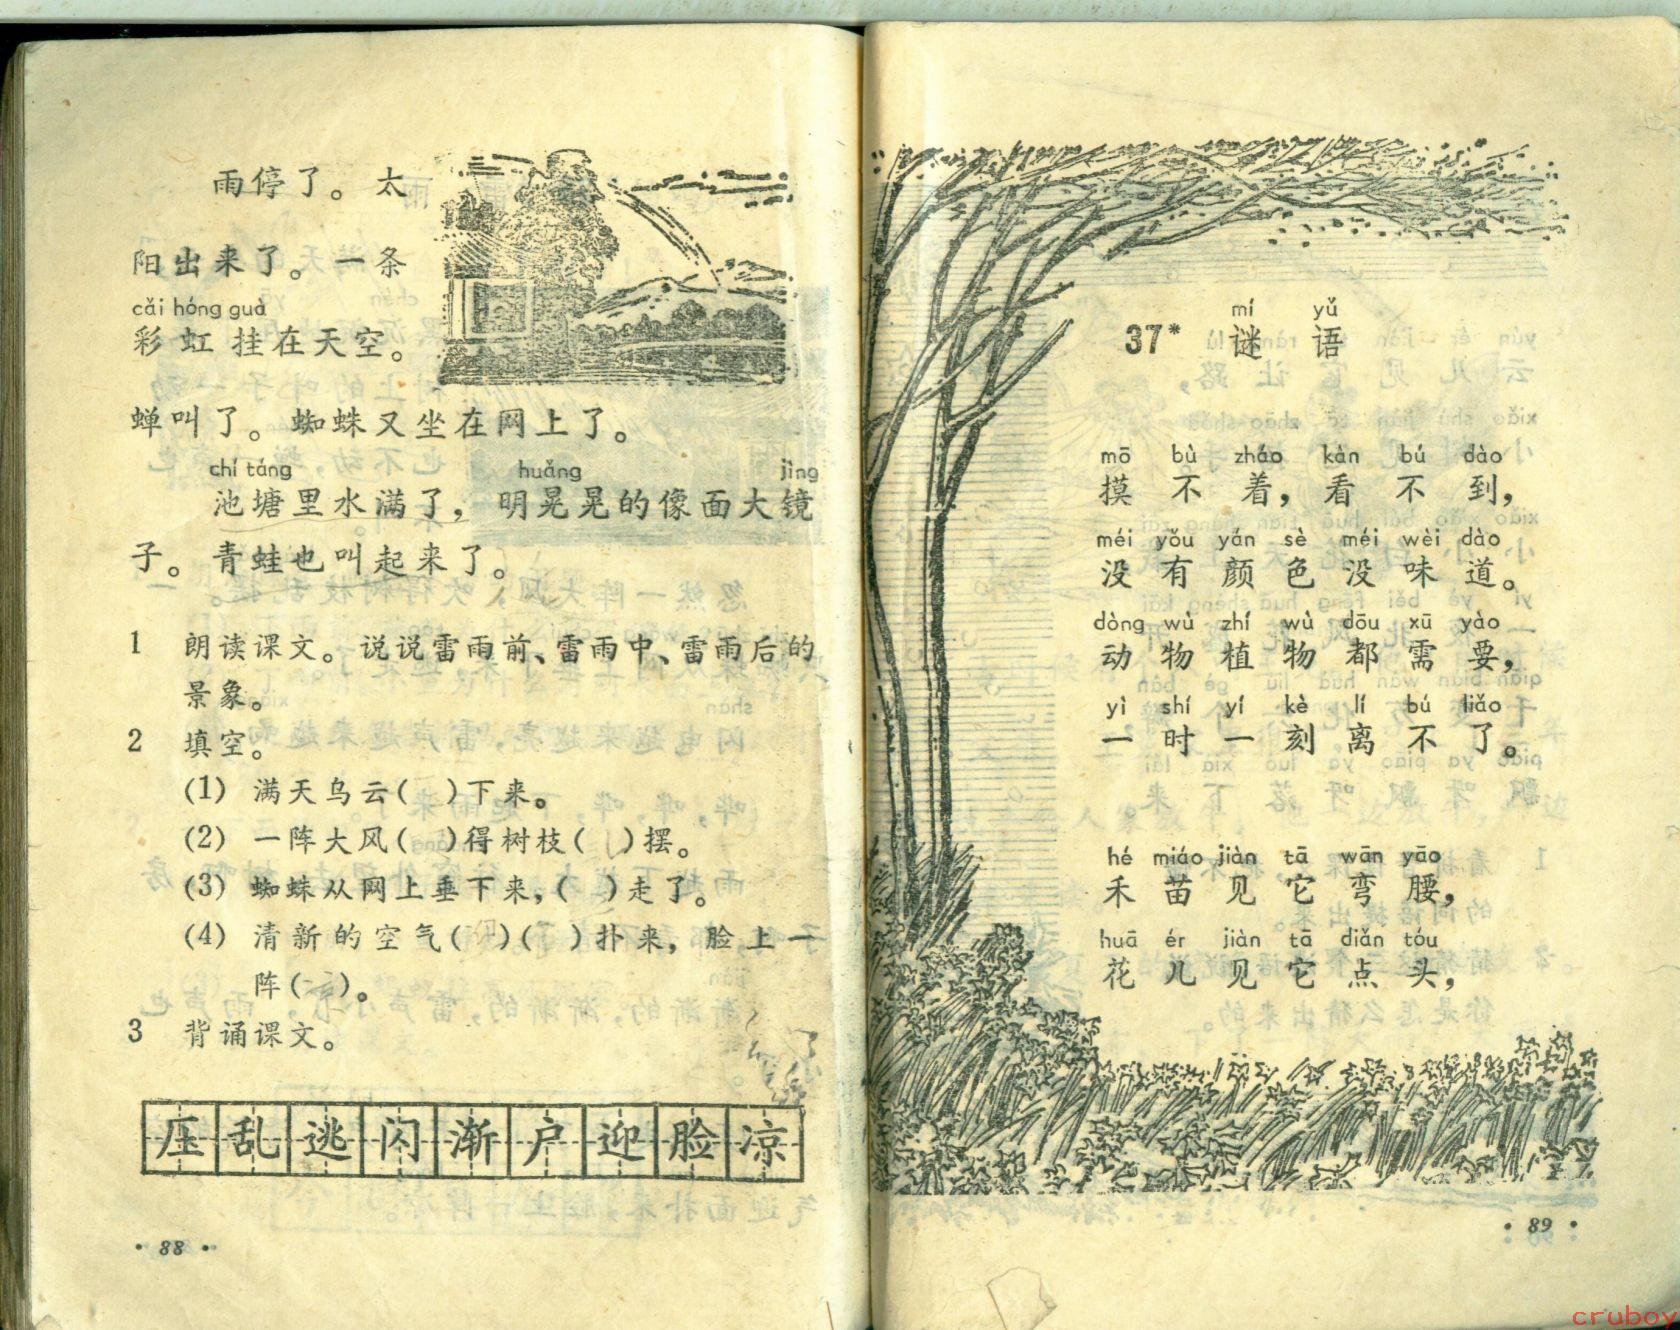 雨停了。太
阳出来了。一条
cǎi hóng guà
彩虹挂在天空。
蝉叫了。蜘蛛又坐在网上了。
chí táng huǎng jìng
池塘里水满了，明晃晃的像面大镜
子。青蛙也叫起来了。
1 朗读课文。说说雷雨前、雷雨中、雷雨后的
景象。
2 填空。
(1) 满天乌云( )下来。
(2) 一阵大风( )得树枝( )摆。
(3) 蜘蛛从网上垂下来，( )走了。
(4) 清新的空气( )( )扑来，脸上一
阵( )。
3 背诵课文。
压乱逃闪渐户迎脸凉
· 88 ·
mí yǔ
37* 谜语
mō bù zháo kàn bú dào
摸不着，看不到，
méi yǒu yán sè méi wèi dào
没有颜色没味道。
dòng wù zhí wù dōu xū yào
动物植物都需要，
yì shí yí kè lí bú liǎo
一时一刻离不了。
hé miáo jiàn tā wān yāo
禾苗见它弯腰，
huā ér jiàn tā diǎn tóu
花儿见它点头，
· 89 ·
cruboy